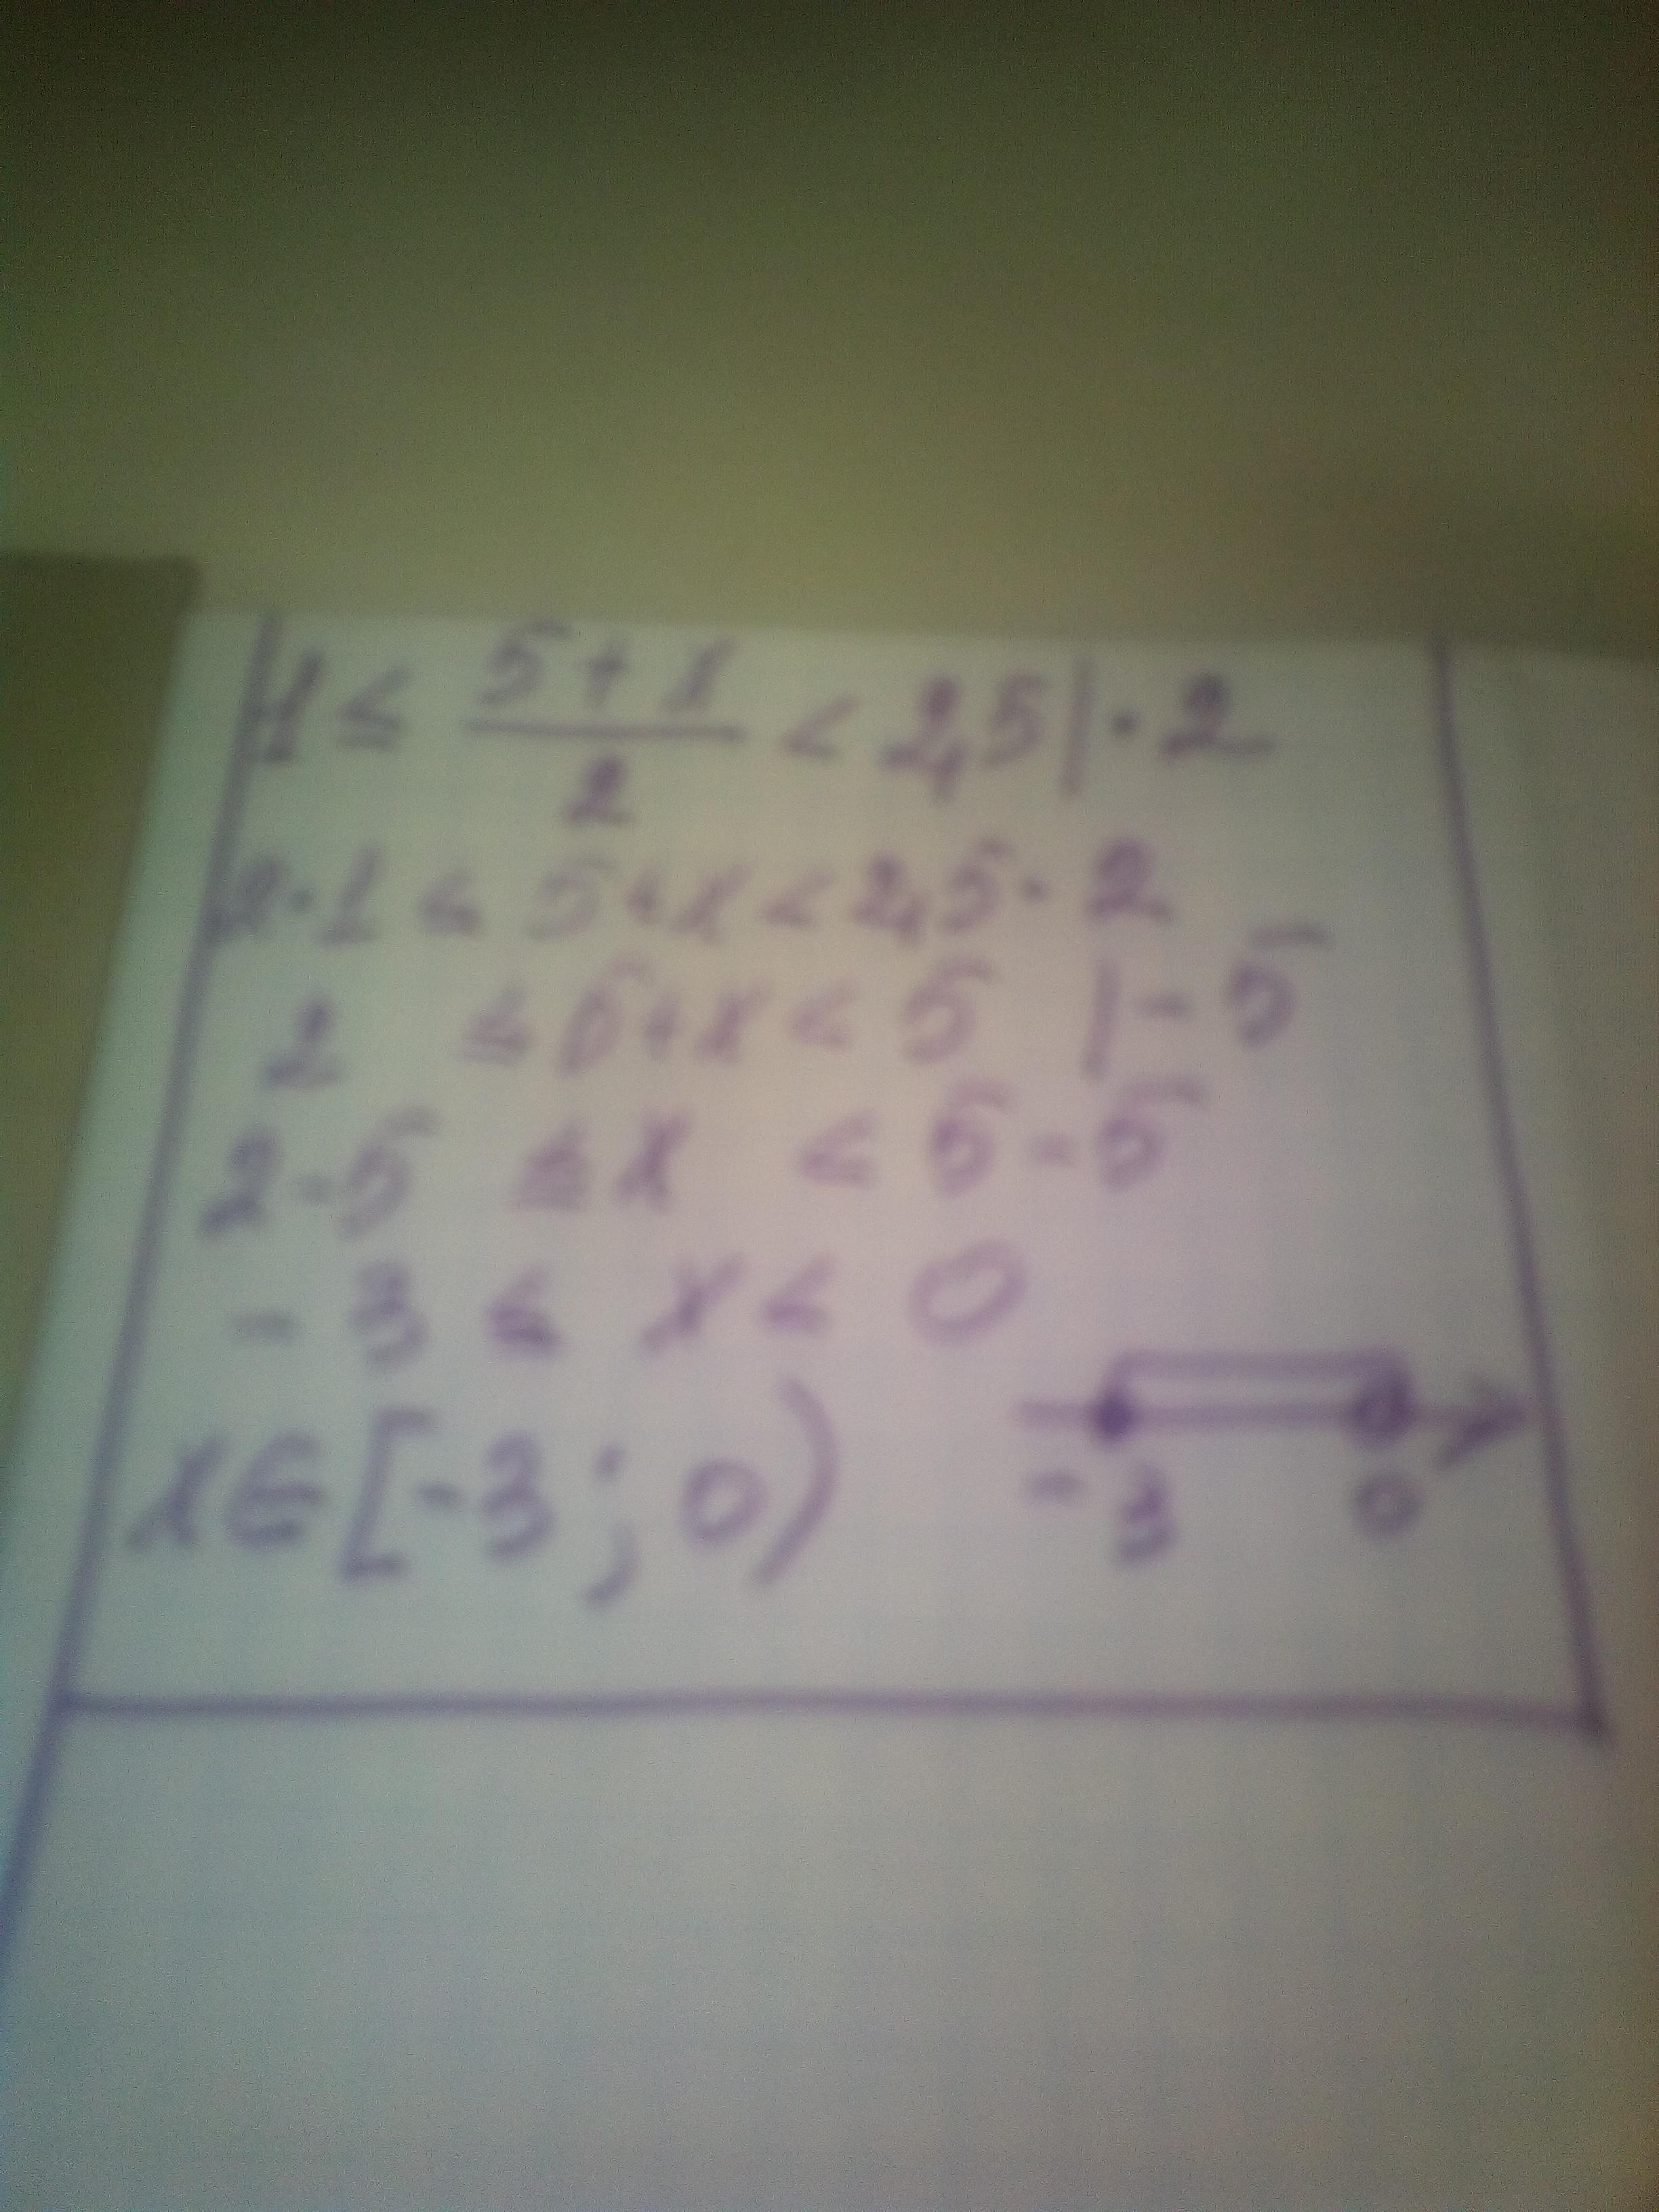 1 ≤ (5+x)/2 < 2,5 | · 2
2·1 ≤ 5+x < 2,5·2
2 ≤ 5+x < 5 | - 5
2-5 ≤ x < 5-5
- 3 ≤ x < 0
x∈[-3; 0)
-3 0